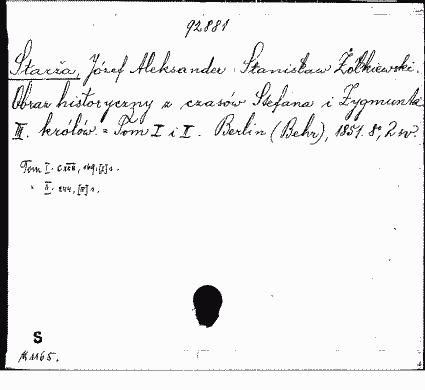 92881
Starża, Józef Aleksander: Stanisław Żółkiewski.
Obraz historyczny z czasów Stefana i Zygmunta
III. królów. = Tom I i II. Berlin (Behr), 1857. 8°, 2 w.
Tom I. 169, [1] s.
" II. 244, [1] s.
S
M 1165.